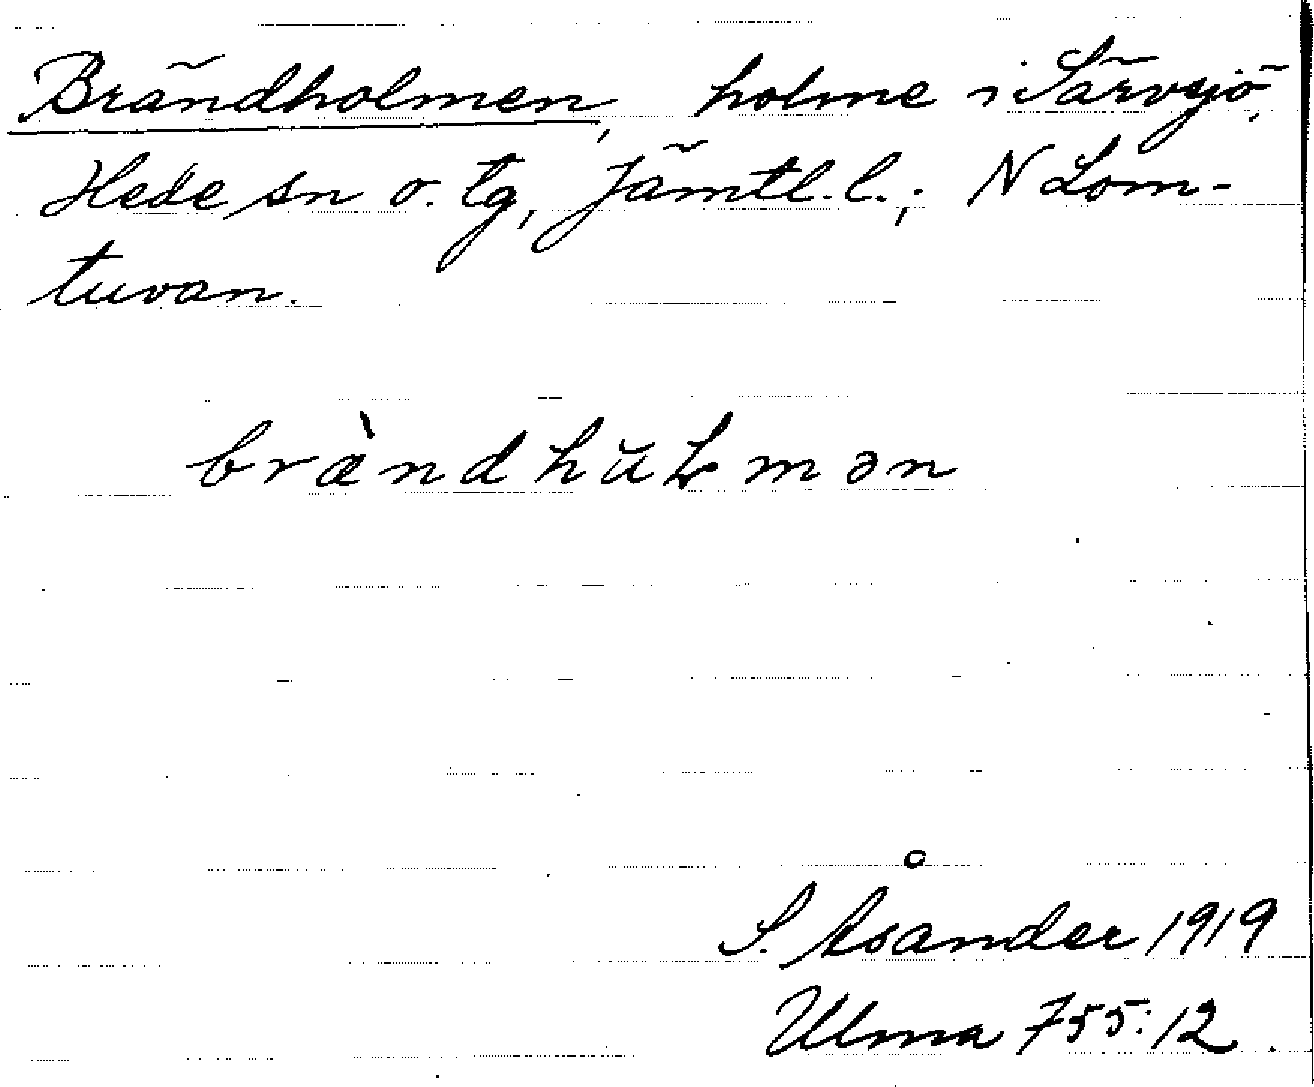 Brändholmen, holme i Särvsjö,
Hede sn o. tg, Jämtl. l.; N Lom-
tuvan.
bræ̀ndhŭɫmən
S. Åsander 1919
Ulma 755:12.